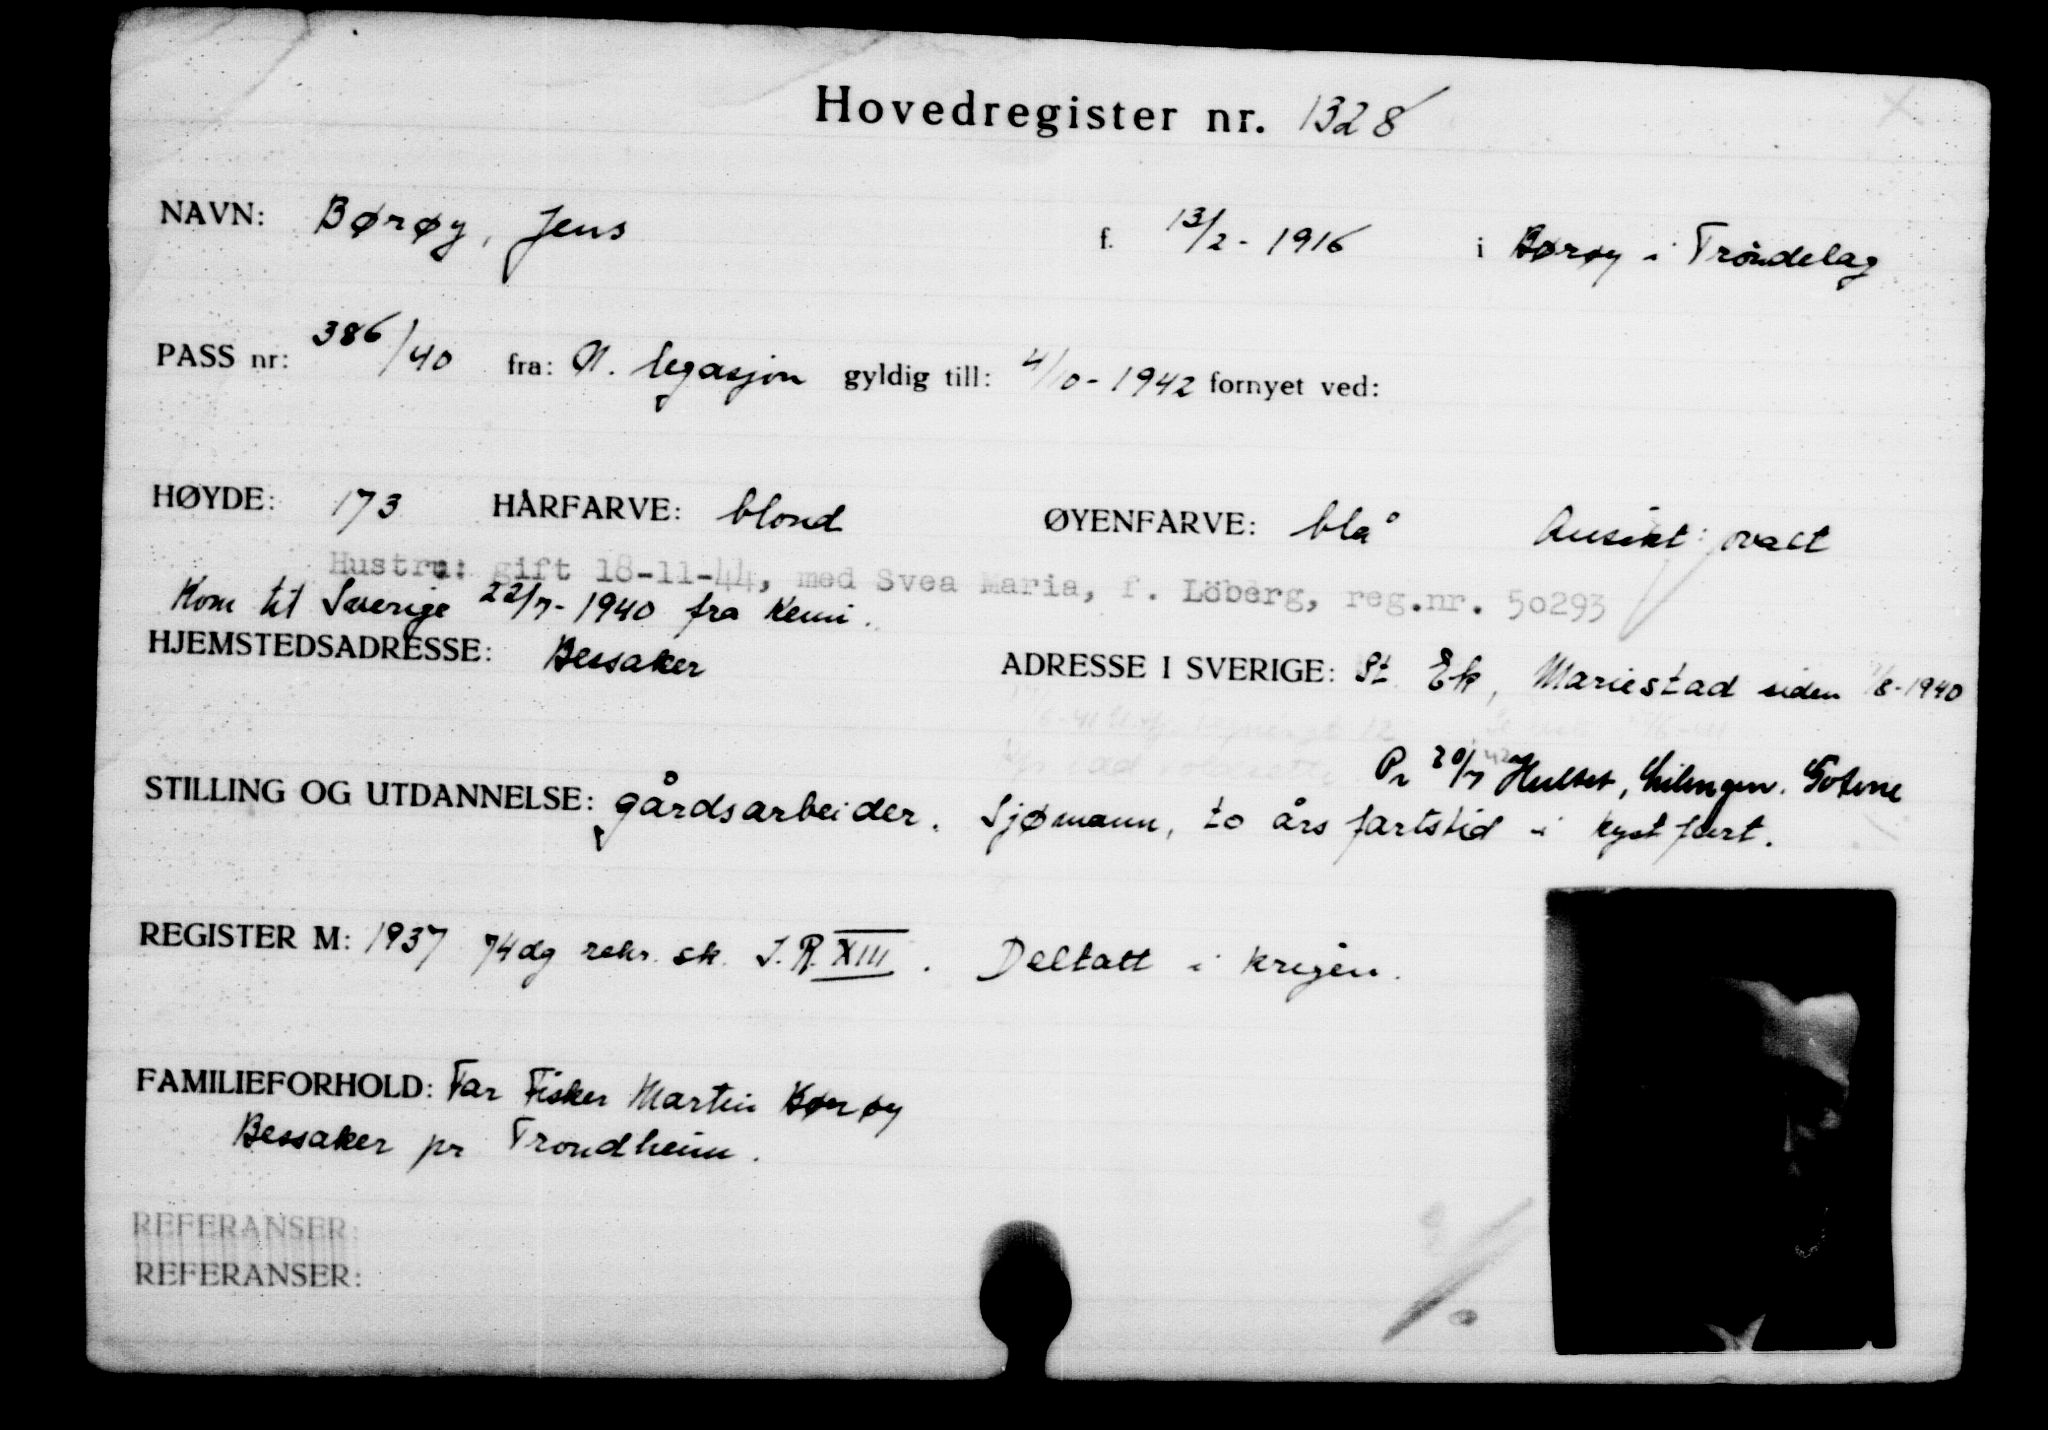 Hovedregister nr. 1328
NAVN: Børøy, Jens f. 13/2 - 1916 i Børøy i Trøndelag
PASS nr: 386/40 fra: N. legasjon gyldig till: 4/10 - 1942 fornyet ved:
HØYDE: 173 HÅRFARVE: blond ØYENFARVE: blå Ansikt: ovalt
Hustru: gift 18-11-44, med Svea Maria, f. Löberg, reg.nr. 50293
Kom til Sverige 22/7 - 1940 fra Kemi.
HJEMSTEDSADRESSE: Bessaker ADRESSE I SVERIGE: St. Ek, Mariestad siden 1/8-1940
Pr 20/7 42 Hultet, Götene
STILLING OG UTDANNELSE: gårdsarbeider. Sjømann, to års fartstid i kystfart.
REGISTER M: 1937 74 dg rekr. sk. I.R. XIII. Deltatt i krigen.
FAMILIEFORHOLD: Far Fisker Martin Børøy
Bessaker pr Trondheim.
REFERANSER:
REFERANSER: